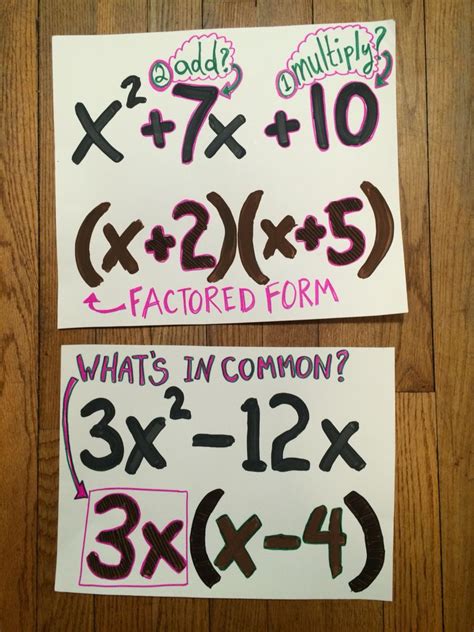 ② add? ① multiply?
x² + 7x + 10
(x+2)(x+5)
FACTORED FORM
WHAT'S IN COMMON?
3x² - 12x
3x(x-4)